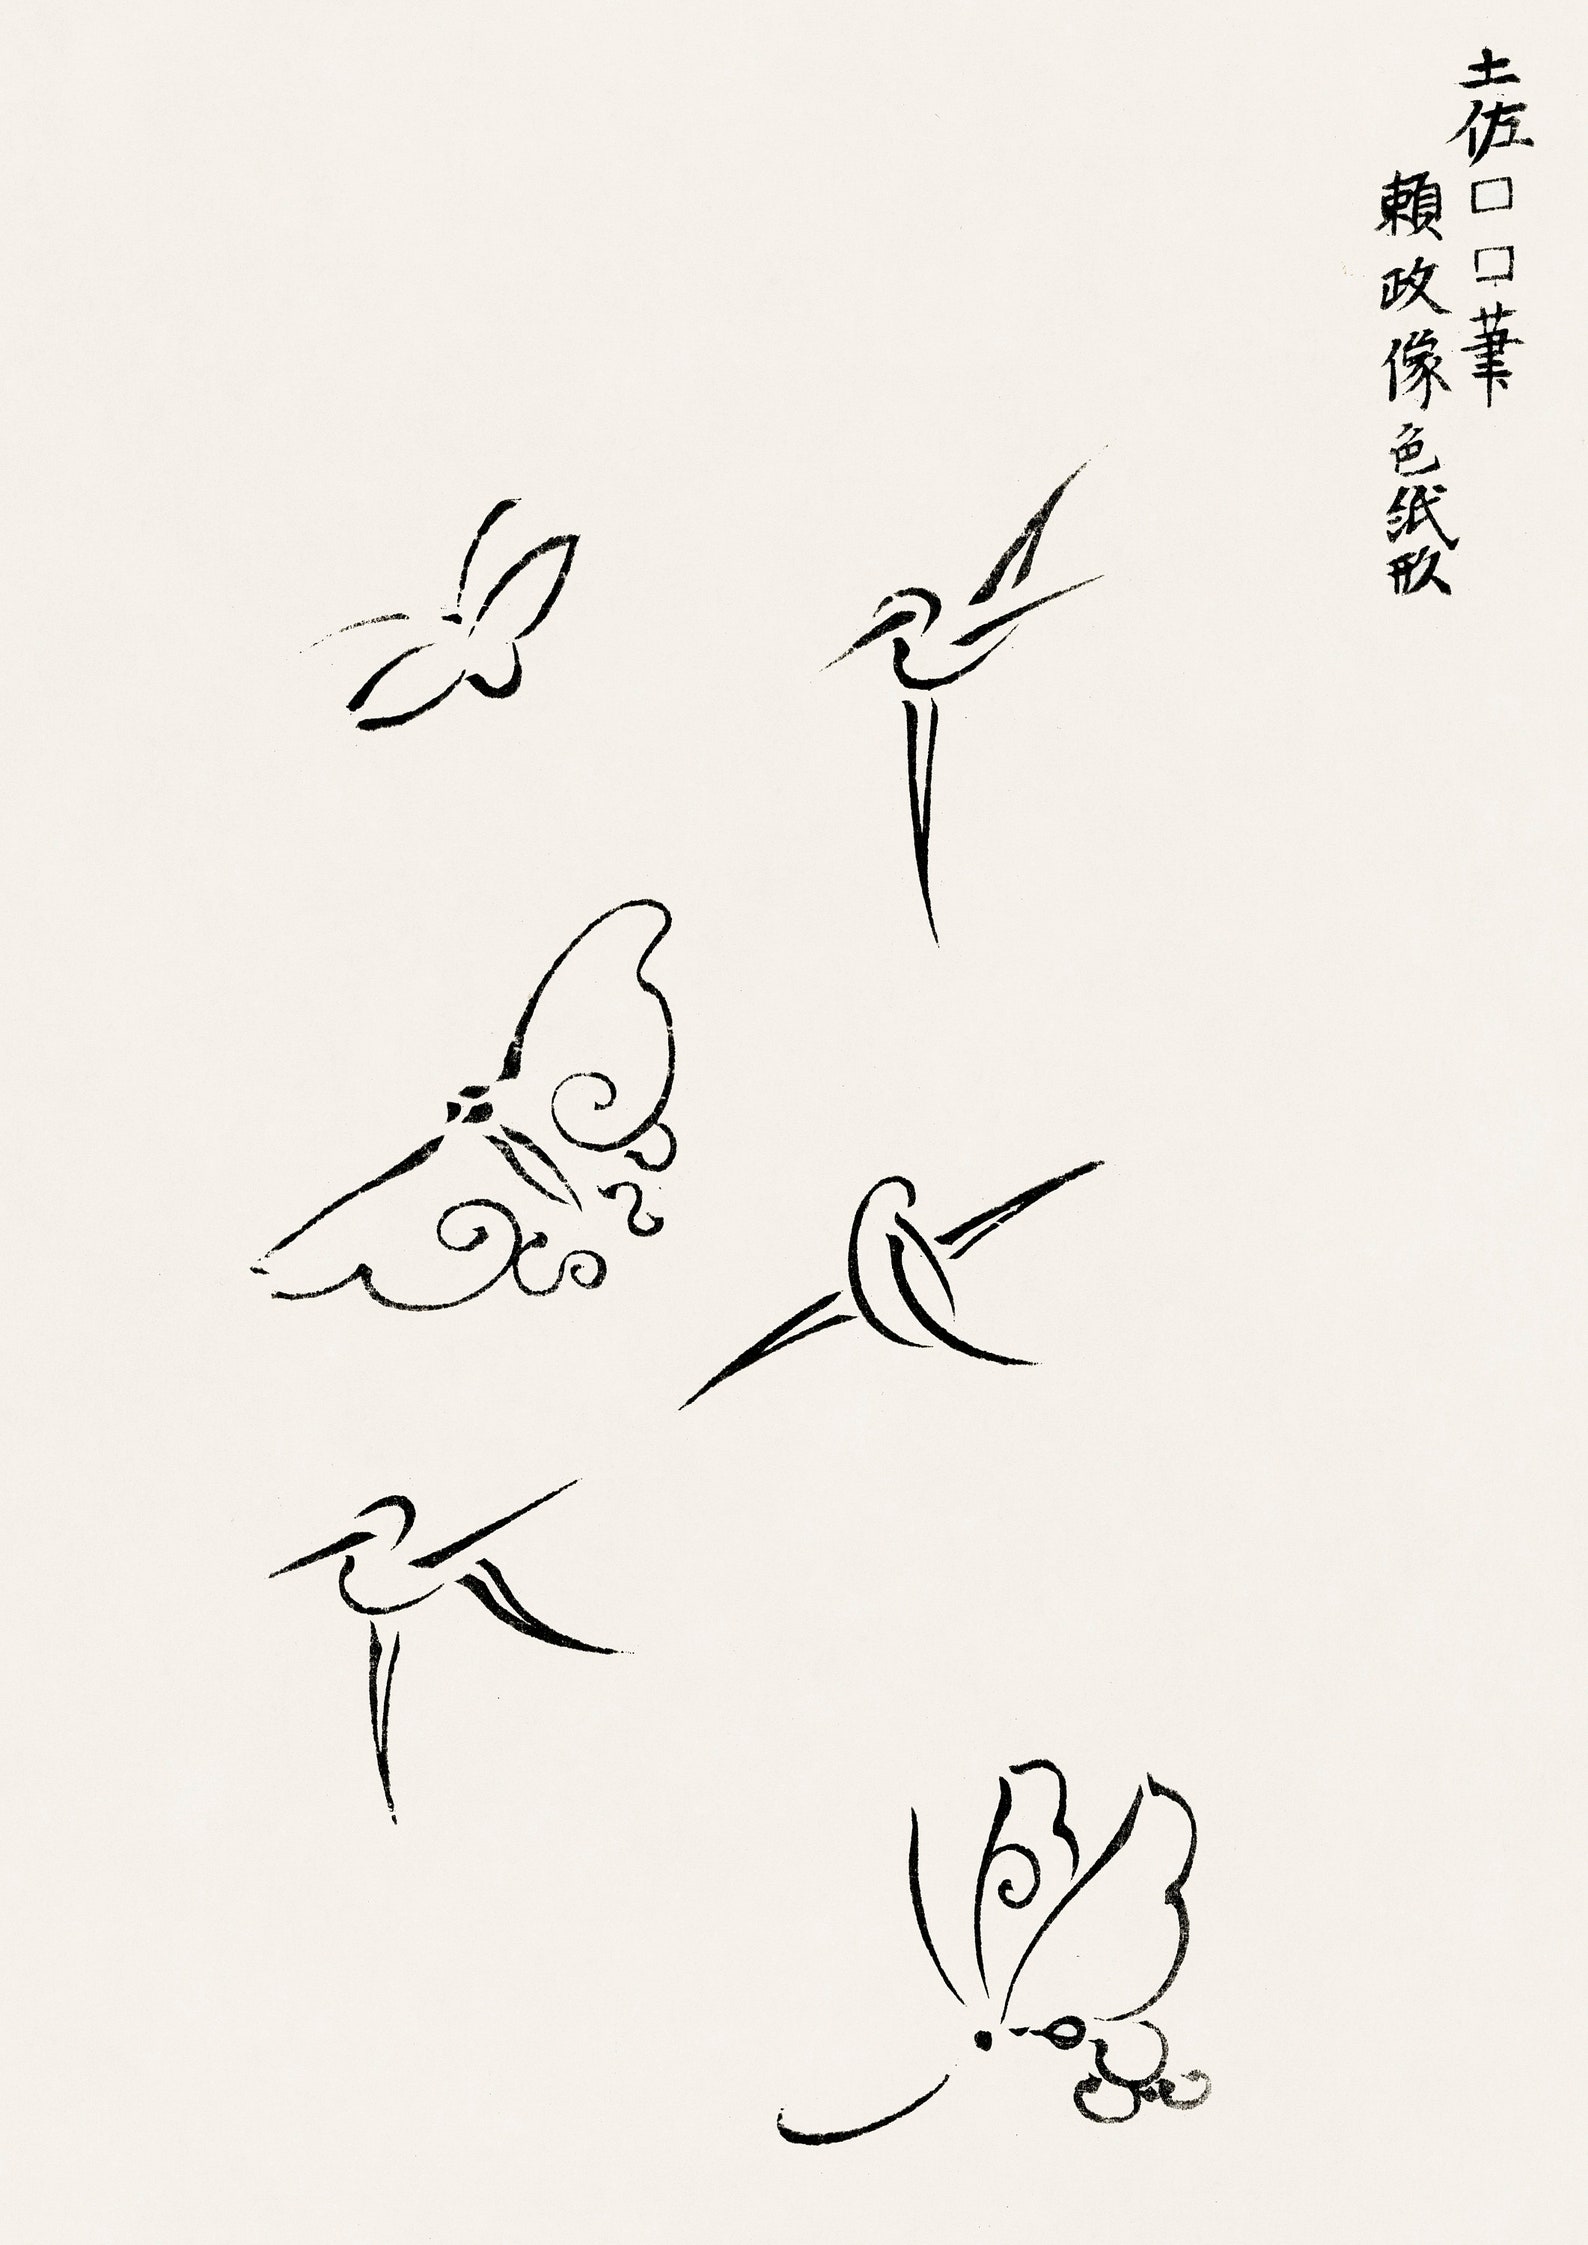 土佐□□筆
頼政像色紙形